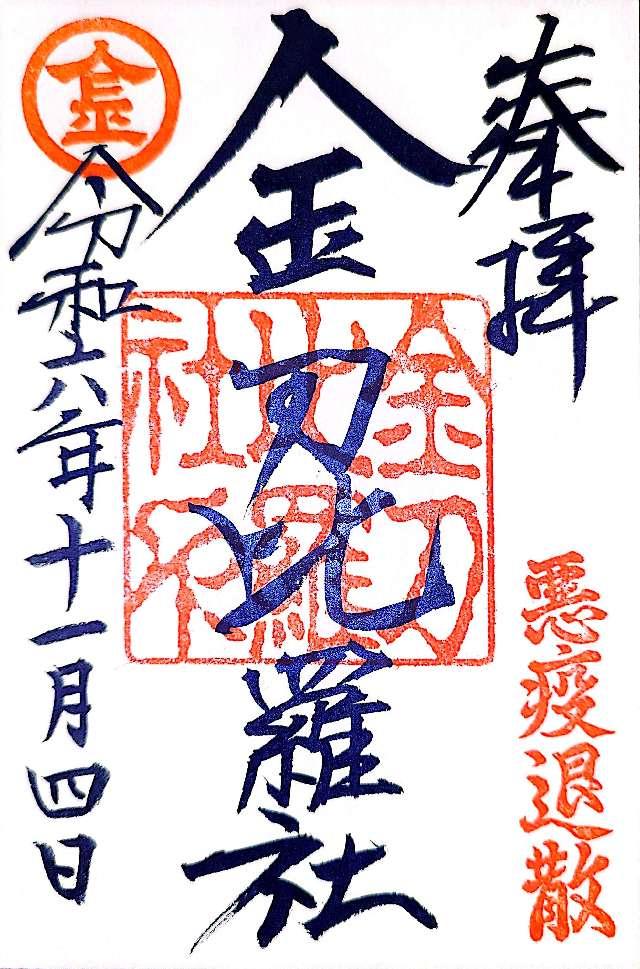 奉拝
悪疫退散
金刃比羅社
金刀
比羅
社
金
令和六年十一月四日